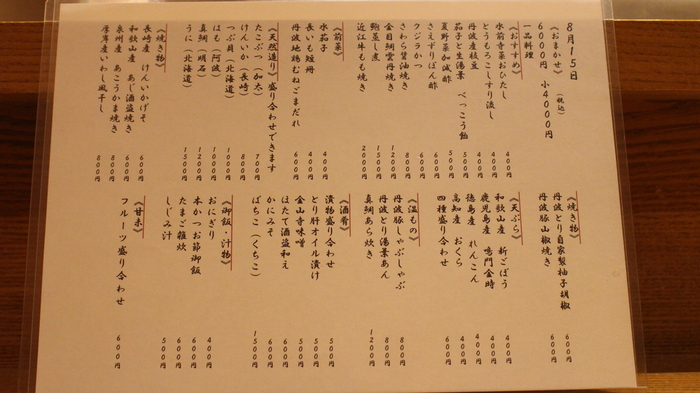 8月15日
《おまかせ》 (税込)
6000円 小4000円
一品料理
《おすすめ》
水前寺菜おひたし 400円
とうもろこしすり流し 400円
丹波産枝豆 400円
茄子と生湯葉 べっこう飴 500円
夏野菜加減酢 500円
さえずりぽん酢 600円
クジラかつ 600円
さわら醤油焼き 800円
金目鯛雲丹焼き 1200円
鮑蒸し煮 1500円
近江牛もも焼き 2000円
《前菜》
水茄子 400円
長いも短冊 400円
丹波地鶏むねごまだれ 600円
《天然造り》盛り合わせできます
たこぶつ(加太) 700円
けんいか(長崎) 800円
つぶ貝(北海道) 1000円
はも(阿波) 1000円
真鯛(明石) 1200円
うに(北海道) 1500円
《焼き物》
長崎産 けんいかげそ 600円
和歌山産 あじ酒盗焼き 600円
泉州産 あこうかま焼き 800円
厚岸産いわし風干し 800円
《焼き物》
丹波とり自家製柚子胡椒 600円
丹波豚山椒焼き 600円
《天ぷら》
和歌山産 新ごぼう 400円
鹿児島産 鳴門金時 400円
徳島産 れんこん 400円
高知産 おくら 400円
四種盛り合わせ 600円
《温もの》
丹波豚しゃぶしゃぶ 800円
丹波とり湯葉あん 800円
真鯛あら炊き 1200円
《酒肴》
漬物盛り合わせ 500円
とり肝オイル漬け 500円
金山寺味噌 500円
ほたて酒盗和え 600円
かにみそ 600円
ばちこ(くちこ) 1500円
《御飯・汁物》
おにぎり 400円
本かつお節御飯 600円
たまご雑炊 600円
しじみ汁 500円
《甘味》
フルーツ盛り合わせ 600円